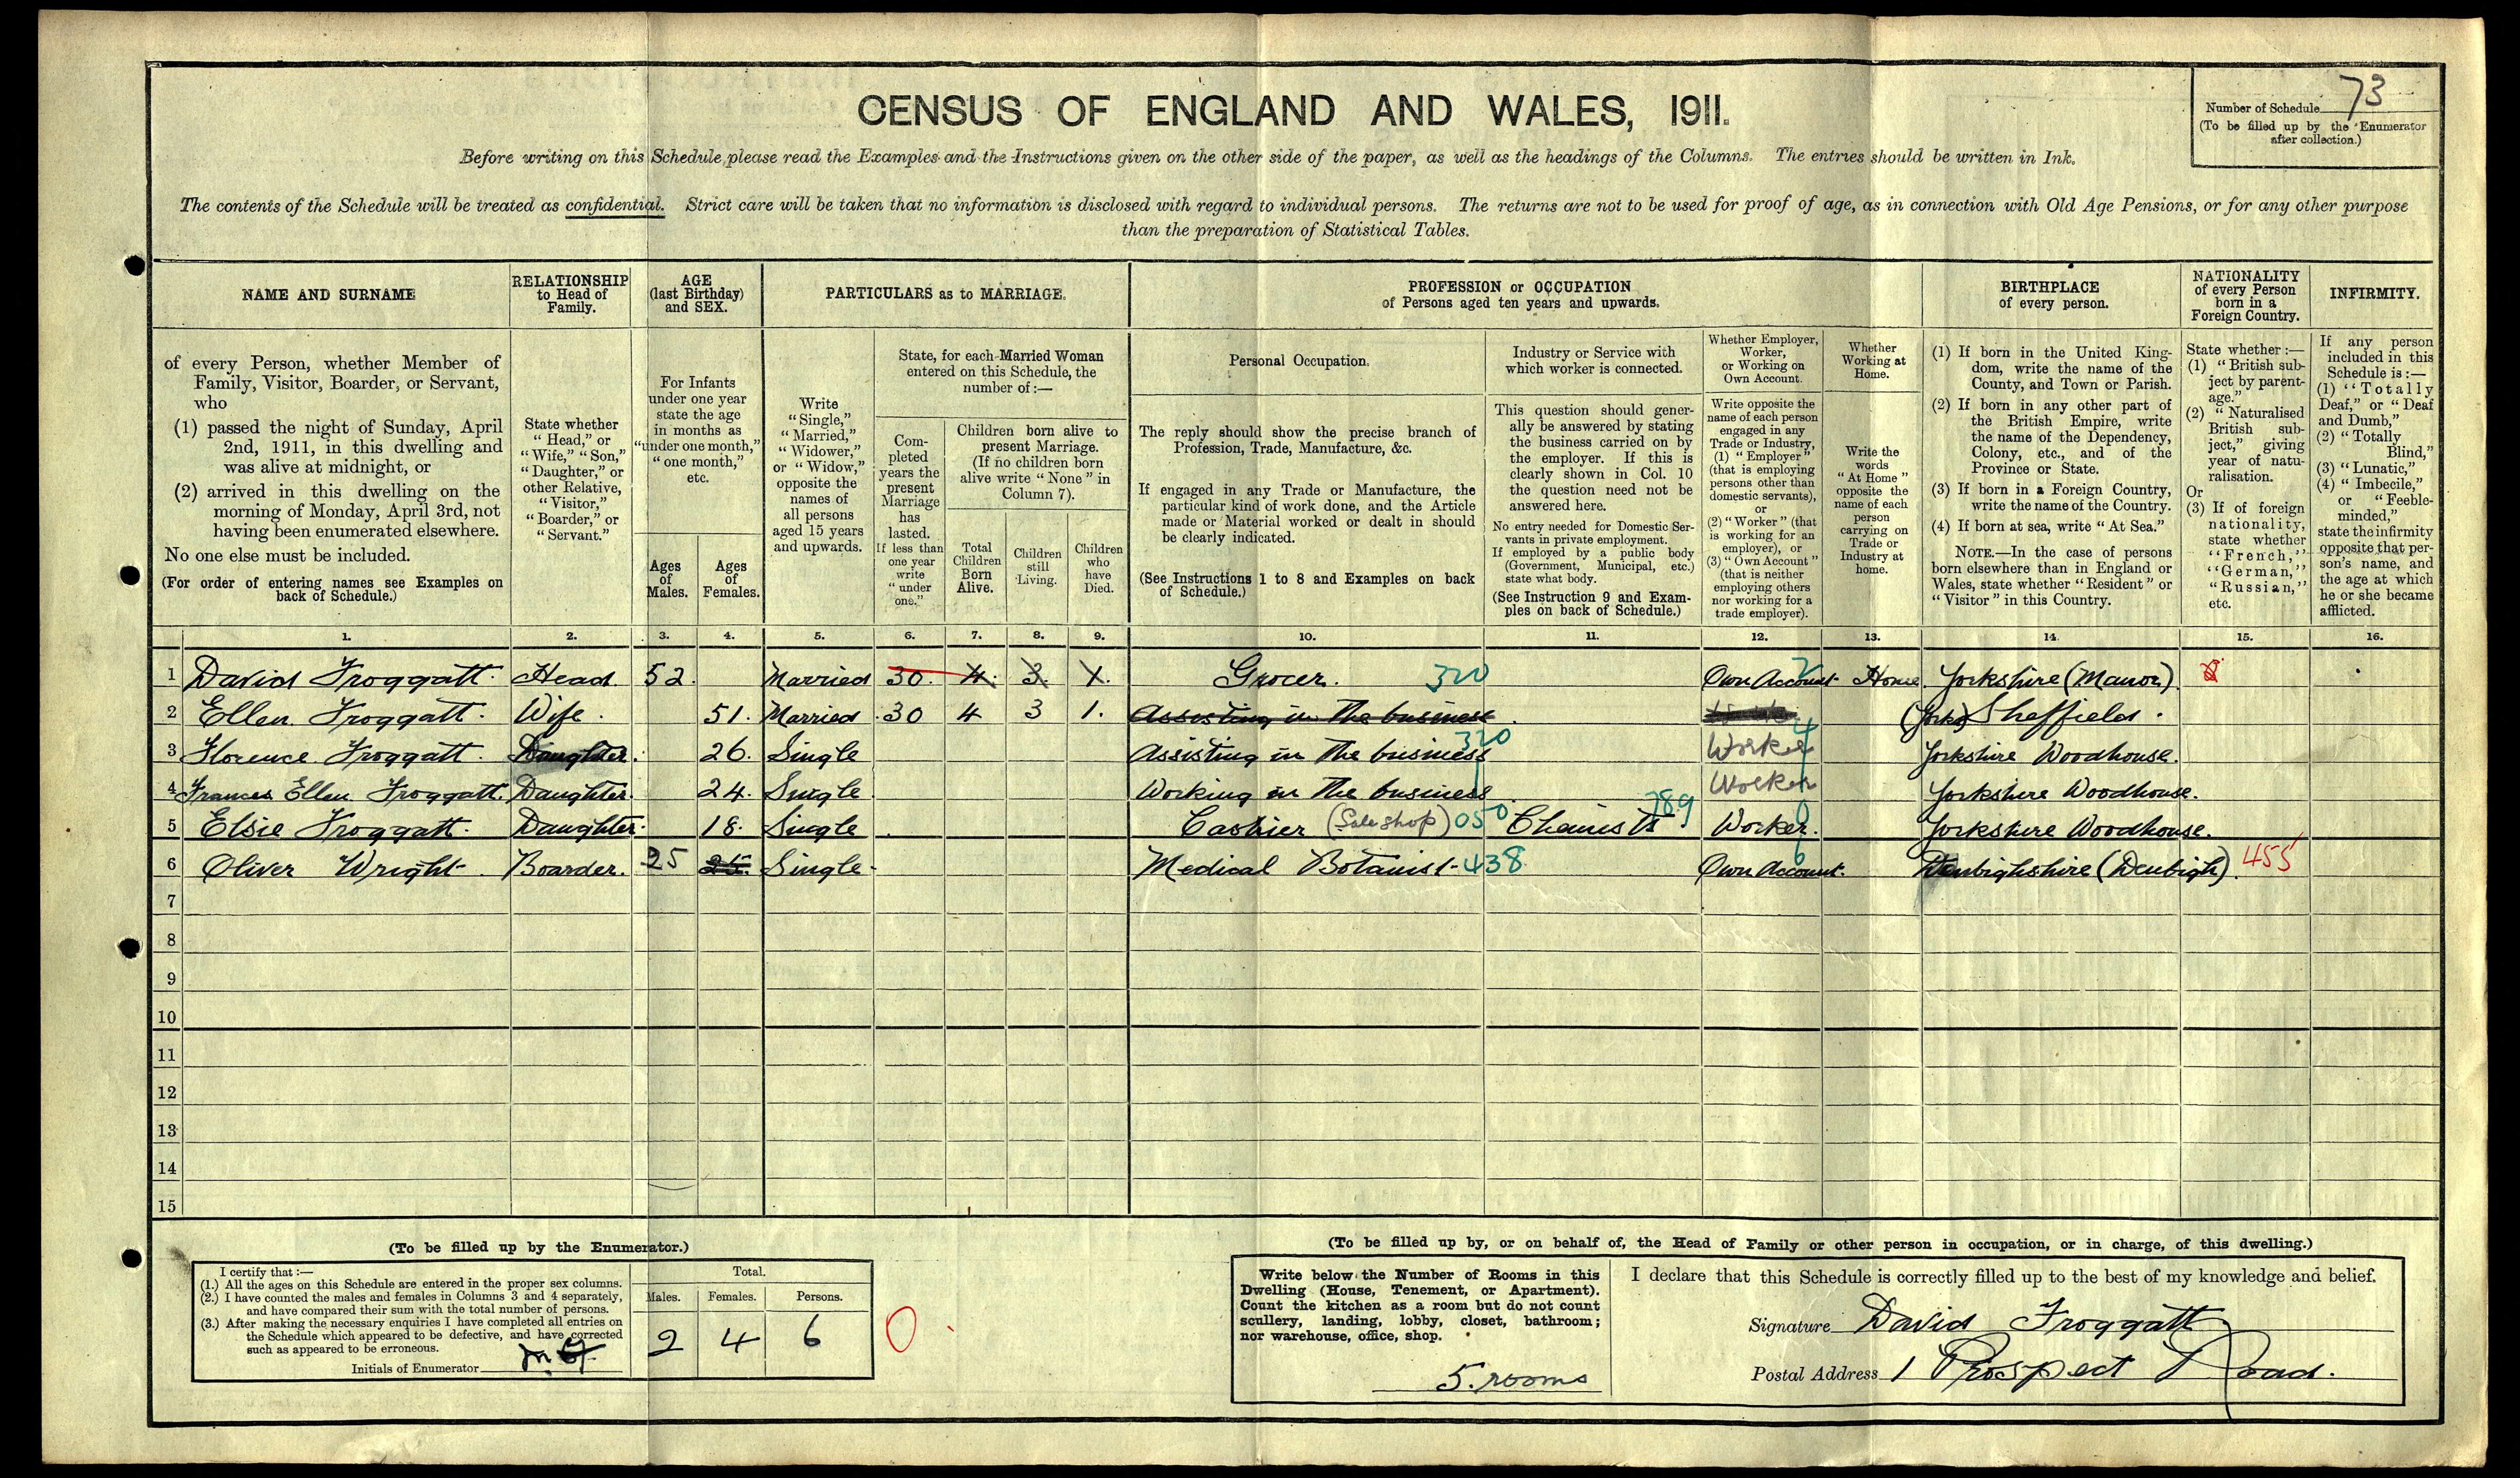 CENSUS OF ENGLAND AND WALES, 1911.
Number of Schedule 73
(To be filled up by the Enumerator
after collection.)
Before writing on this Schedule please read the Examples and the Instructions given on the other side of the paper, as well as the headings of the Columns. The entries should be written in Ink.
The contents of the Schedule will be treated as confidential. Strict care will be taken that no information is disclosed with regard to individual persons. The returns are not to be used for proof of age, as in connection with Old Age Pensions, or for any other purpose
than the preparation of Statistical Tables.
NAME AND SURNAME
RELATIONSHIP
to Head of
Family.
AGE
(last Birthday)
and SEX.
PARTICULARS as to MARRIAGE.
PROFESSION or OCCUPATION
of Persons aged ten years and upwards.
BIRTHPLACE
of every person.
NATIONALITY
of every Person
born in a
Foreign Country.
INFIRMITY.
of every Person, whether Member of
Family, Visitor, Boarder, or Servant,
who
(1) passed the night of Sunday, April
2nd, 1911, in this dwelling and
was alive at midnight, or
(2) arrived in this dwelling on the
morning of Monday, April 3rd, not
having been enumerated elsewhere.
No one else must be included.
(For order of entering names see Examples on
back of Schedule.)
State whether
"Head," or
"Wife," "Son,"
"Daughter," or
other Relative,
"Visitor,"
"Boarder," or
"Servant."
For Infants
under one year
state the age
in months as
"under one month,"
"one month,"
etc.
Ages
of
Males.
Ages
of
Females.
Write
"Single,"
"Married,"
"Widower,"
or "Widow,"
opposite the
names of
all persons
aged 15 years
and upwards.
State, for each Married Woman
entered on this Schedule, the
number of:—
Com-
pleted
years the
present
Marriage
has
lasted.
If less than
one year
write
"under
one."
Children born alive to
present Marriage.
(If no children born
alive write "None" in
Column 7).
Total
Children
Born
Alive.
Children
still
Living.
Children
who
have
Died.
Personal Occupation.
The reply should show the precise branch of
Profession, Trade, Manufacture, &c.
If engaged in any Trade or Manufacture, the
particular kind of work done, and the Article
made or Material worked or dealt in should
be clearly indicated.
(See Instructions 1 to 8 and Examples on back
of Schedule.)
Industry or Service with
which worker is connected.
This question should gener-
ally be answered by stating
the business carried on by
the employer. If this is
clearly shown in Col. 10
the question need not be
answered here.
No entry needed for Domestic Ser-
vants in private employment.
If employed by a public body
(Government, Municipal, etc.)
state what body.
(See Instruction 9 and Exam-
ples on back of Schedule.)
Whether Employer,
Worker,
or Working on
Own Account.
Write opposite the
name of each person
engaged in any
Trade or Industry,
(1) "Employer"
(that is employing
persons other than
domestic servants),
or
(2) "Worker" (that
is working for an
employer), or
(3) "Own Account"
(that is neither
employing others
nor working for a
trade employer).
Whether
Working at
Home.
Write the
words
"At Home"
opposite the
name of each
person
carrying on
Trade or
Industry at
home.
(1) If born in the United King-
dom, write the name of the
County, and Town or Parish.
(2) If born in any other part of
the British Empire, write
the name of the Dependency,
Colony, etc., and of the
Province or State.
(3) If born in a Foreign Country,
write the name of the Country.
(4) If born at sea, write "At Sea."
NOTE.—In the case of persons
born elsewhere than in England or
Wales, state whether "Resident" or
"Visitor" in this Country.
State whether:—
(1) "British sub-
ject by parent-
age."
(2) "Naturalised
British sub-
ject," giving
year of natu-
ralisation.
Or
(3) If of foreign
nationality,
state whether
"French,"
"German,"
"Russian,"
etc.
If any person
included in this
Schedule is:—
(1) "Totally
Deaf," or "Deaf
and Dumb,"
(2) "Totally
Blind,"
(3) "Lunatic,"
(4) "Imbecile,"
or "Feeble-
minded,"
state the infirmity
opposite that per-
son's name, and
the age at which
he or she became
afflicted.
1. 2. 3. 4. 5. 6. 7. 8. 9. 10. 11. 12. 13. 14. 15. 16.
1 David Froggatt. Head. 52. Married 30. 4. 3. 1. Grocer. 320 Own Account Home Yorkshire (Manor)
2 Ellen Froggatt. Wife. 51. Married 30 4 3 1. Assisting in the business (Yorks) Sheffield.
3 Florence Froggatt. Daughter. 26. Single Assisting in the business 320 Worker 4 Yorkshire Woodhouse.
4 Frances Ellen Froggatt. Daughter. 24. Single Working in the business Worker Yorkshire Woodhouse.
5 Elsie Froggatt. Daughter. 18. Single Cashier (Sale shop) 050 Chemists 789 Worker. Yorkshire Woodhouse.
6 Oliver Wright. Boarder. 25 25. Single Medical Botanist 438 Own Account. 6 Denbighshire (Denbigh). 455
7
8
9
10
11
12
13
14
15
(To be filled up by the Enumerator.)
I certify that:—
(1.) All the ages on this Schedule are entered in the proper sex columns.
(2.) I have counted the males and females in Columns 3 and 4 separately,
and have compared their sum with the total number of persons.
(3.) After making the necessary enquiries I have completed all entries on
the Schedule which appeared to be defective, and have corrected
such as appeared to be erroneous.
Initials of Enumerator
Total.
Males. Females. Persons.
2 4 6
0
(To be filled up by, or on behalf of, the Head of Family or other person in occupation, or in charge, of this dwelling.)
Write below the Number of Rooms in this
Dwelling (House, Tenement, or Apartment).
Count the kitchen as a room but do not count
scullery, landing, lobby, closet, bathroom;
nor warehouse, office, shop.
5. rooms
I declare that this Schedule is correctly filled up to the best of my knowledge and belief.
Signature David Froggatt
Postal Address 1 Prospect Road.